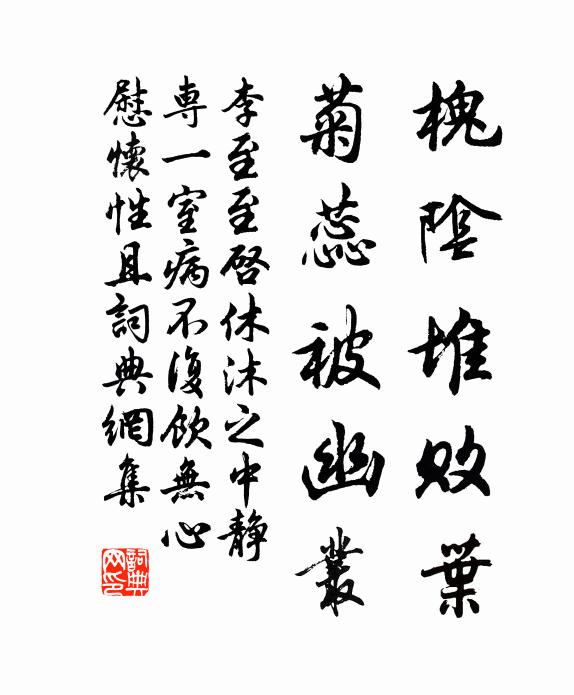 槐陰堆败葉
菊蕊被幽叢
李至至啓休沐之中静
専一室病不復飲無心
慰懷性且詞典網集
詞典网印